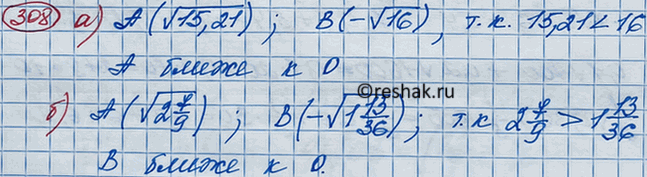 308 а) А(√15,21) ; В(-√16), т.к. 15,21 < 16
А ближе к 0
©reshak.ru
б) А(√2 7/9) ; В(-√1 13/36) ; т.к 2 7/9 > 1 13/36
В ближе к 0.